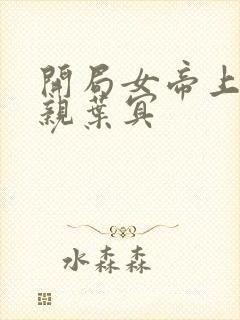 開局女帝上
親葉宾
水森森